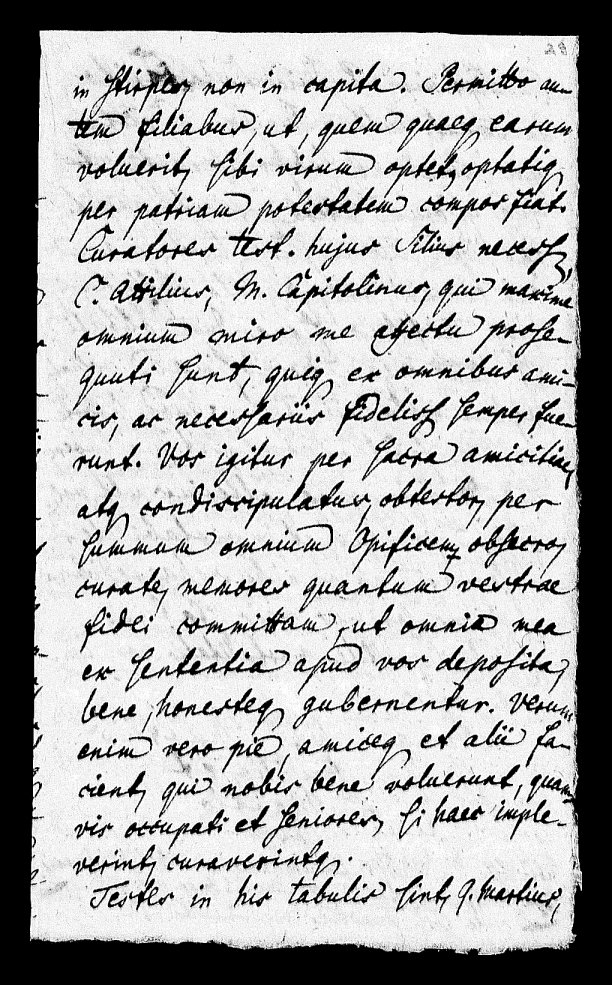 in stirpes, non in capita. Permitto au-
tem filiabus, ut, quem quaeq, earum
voluerit, sibi virum optet, optatiq,
per patriam potestatem compos fiat.
Curatores test. hujus Silius necess,
C. Attilius, M. Capitolinus, qui maxime
omnium miro me affectu prose-
quuti sunt, quiq, ex omnibus ami-
cis, ac necessariis fideliss semper fue-
runt. Vos igitur per sacra amicitiae,
atq, condiscipulatus, obtestor, per
summum omnium Opificem, obsecro,
curate, memores quantum vestrae
fidei committam, ut omnia mea
ex sententia apud vos deposita,
bene, honesteq, gubernentur. Verum
enim vero pie, amiceq, et alii fa-
cient, qui nobis bene voluerunt, quam-
vis occupati et seniores, si haec imple-
verint, curaverintq,.
Testes in his tabulis sint, Q. Martius,